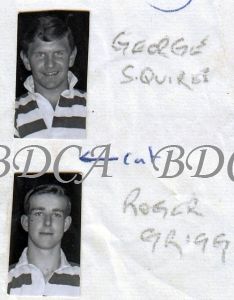 GEORGE
SQUIRES
BDCA
← cut
BDCA
ROGER
GRIGG